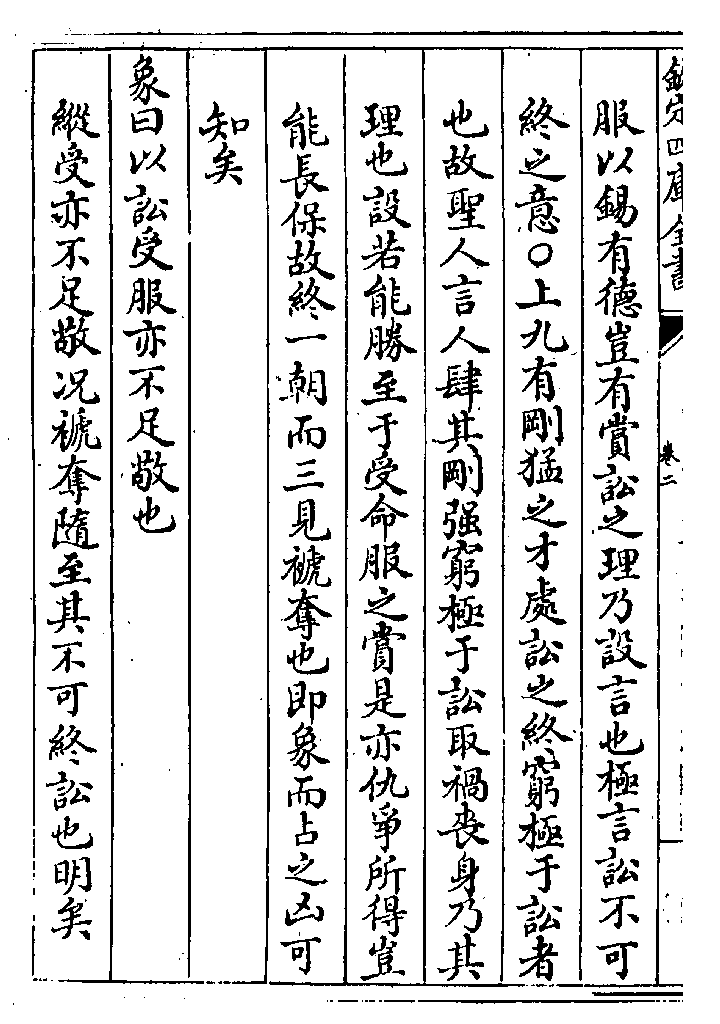 欽定四庫全書
卷二
服以錫有德豈有賞訟之理乃設言也極言訟不可
終之意○上九有剛猛之才處訟之終窮極于訟者
也故聖人言人肆其剛强窮極于訟取禍喪身乃其
理也設若能勝至于受命服之賞是亦仇爭所得豈
能長保故終一朝而三見褫奪也即象而占之凶可
知矣
象曰以訟受服亦不足敬也
縱受亦不足敬况褫奪隨至其不可終訟也明矣